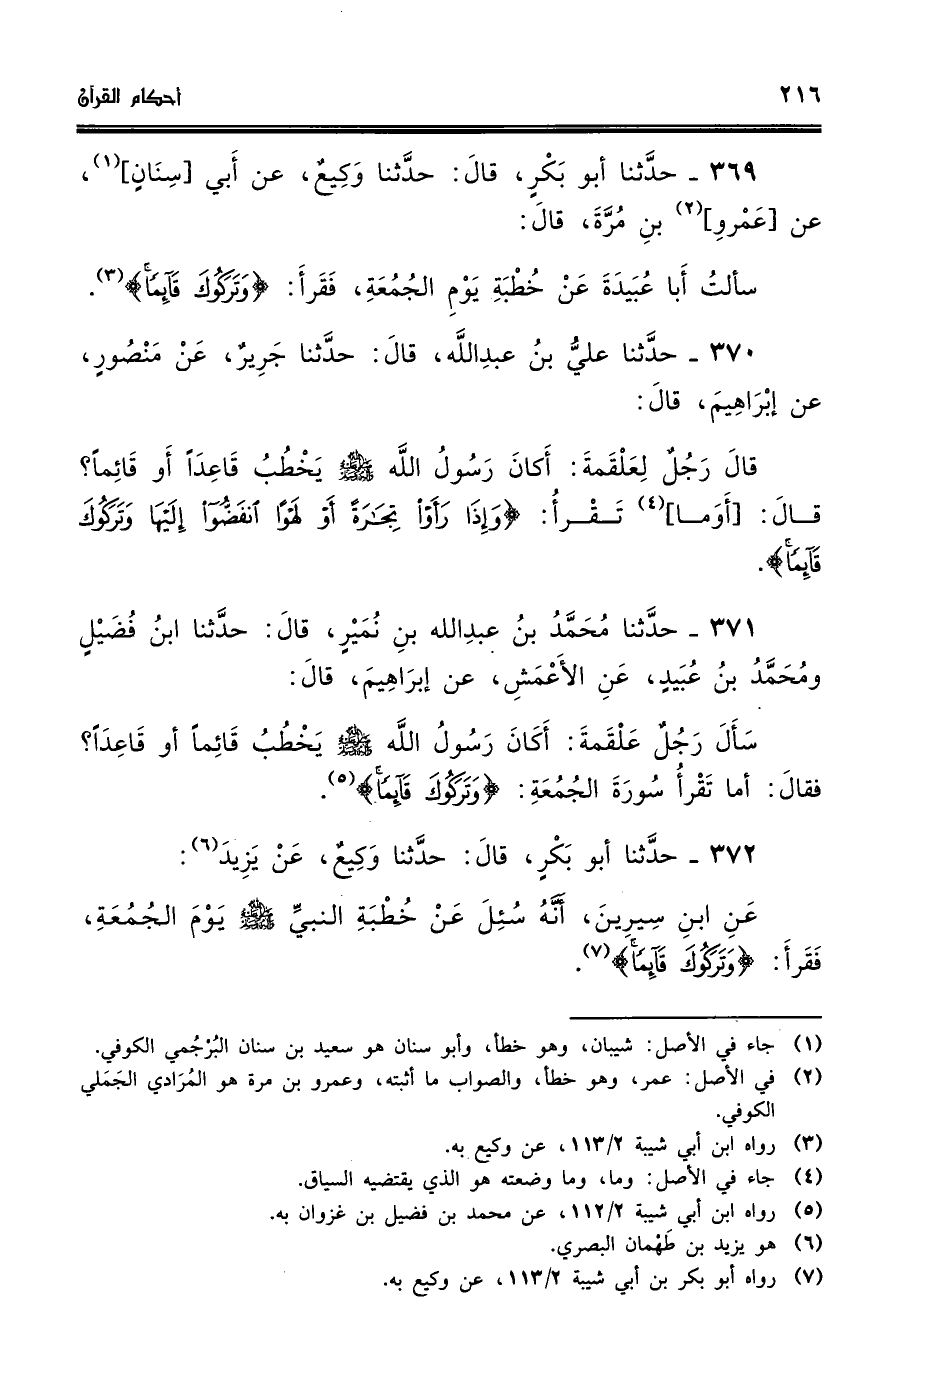 ٢١٦
أحكام القرآن
٣٦٩ ـ حدَّثنا أبو بَكْرٍ، قالَ: حدَّثنا وَكِيعٌ، عن أبي [سِنَانٍ](١)،
عن [عَمْرِو](٢) بنِ مُرَّةَ، قالَ:
سألتُ أَبا عُبَيدَةَ عَنْ خُطْبَةِ يَوْمِ الجُمُعَةِ، فَقَرأَ: ﴿وَتَرَكُوكَ قَآئِمًاۚ﴾(٣).
٣٧٠ ـ حدَّثنا عليُّ بنُ عبدِاللَّه، قالَ: حدَّثنا جَرِيرٌ، عَنْ مَنْصُورٍ،
عن إبْرَاهِيمَ، قالَ:
قالَ رَجُلٌ لِعَلْقَمةَ: أَكانَ رَسُولُ اللَّه ﷺ يَخْطُبُ قَاعِدَاً أو قَائِماً؟
قـالَ: [أَوَمـا](٤) تَـقْـرأُ: ﴿وَإِذَا رَأَوْا۟ تِجَـٰرَةً أَوْ لَهْوًا ٱنفَضُّوٓا۟ إِلَيْهَا وَتَرَكُوكَ
قَآئِمًاۚ﴾.
٣٧١ ـ حدَّثنا مُحَمَّدُ بنُ عبدِالله بنِ نُمَيْرٍ، قالَ: حدَّثنا ابنُ فُضَيْلٍ
ومُحَمَّدُ بنُ عُبَيدٍ، عَنِ الأَعْمَشِ، عن إبرَاهِيمَ، قالَ:
سَأَلَ رَجُلٌ عَلْقَمةَ: أَكانَ رَسُولُ اللَّه ﷺ يَخْطُبُ قَائِماً أو قَاعِدَاً؟
فقالَ: أما تَقْرأُ سُورَةَ الجُمُعَةِ: ﴿وَتَرَكُوكَ قَآئِمًاۚ﴾(٥).
٣٧٢ ـ حدَّثنا أبو بَكْرٍ، قالَ: حدَّثنا وَكِيعٌ، عَنْ يَزِيدَ(٦):
عَنِ ابنِ سِيرِينَ، أَنَّهُ سُئِلَ عَنْ خُطْبَةِ النبيِّ ﷺ يَوْمَ الجُمُعَةِ،
فَقَرأَ: ﴿وَتَرَكُوكَ قَآئِمًاۚ﴾(٧).
(١) جاء في الأصل: شيبان، وهو خطأ، وأبو سنان هو سعيد بن سنان البُرْجُمي الكوفي.
(٢) في الأصل: عمر، وهو خطأ، والصواب ما أثبته، وعمرو بن مرة هو المُرَادي الجَمَلي
الكوفي.
(٣) رواه ابن أبي شيبة ١١٣/٢، عن وكيع به.
(٤) جاء في الأصل: وما، وما وضعته هو الذي يقتضيه السياق.
(٥) رواه ابن أبي شيبة ١١٢/٢، عن محمد بن فضيل بن غزوان به.
(٦) هو يزيد بن طَهْمان البصري.
(٧) رواه أبو بكر بن أبي شيبة ١١٣/٢، عن وكيع به.